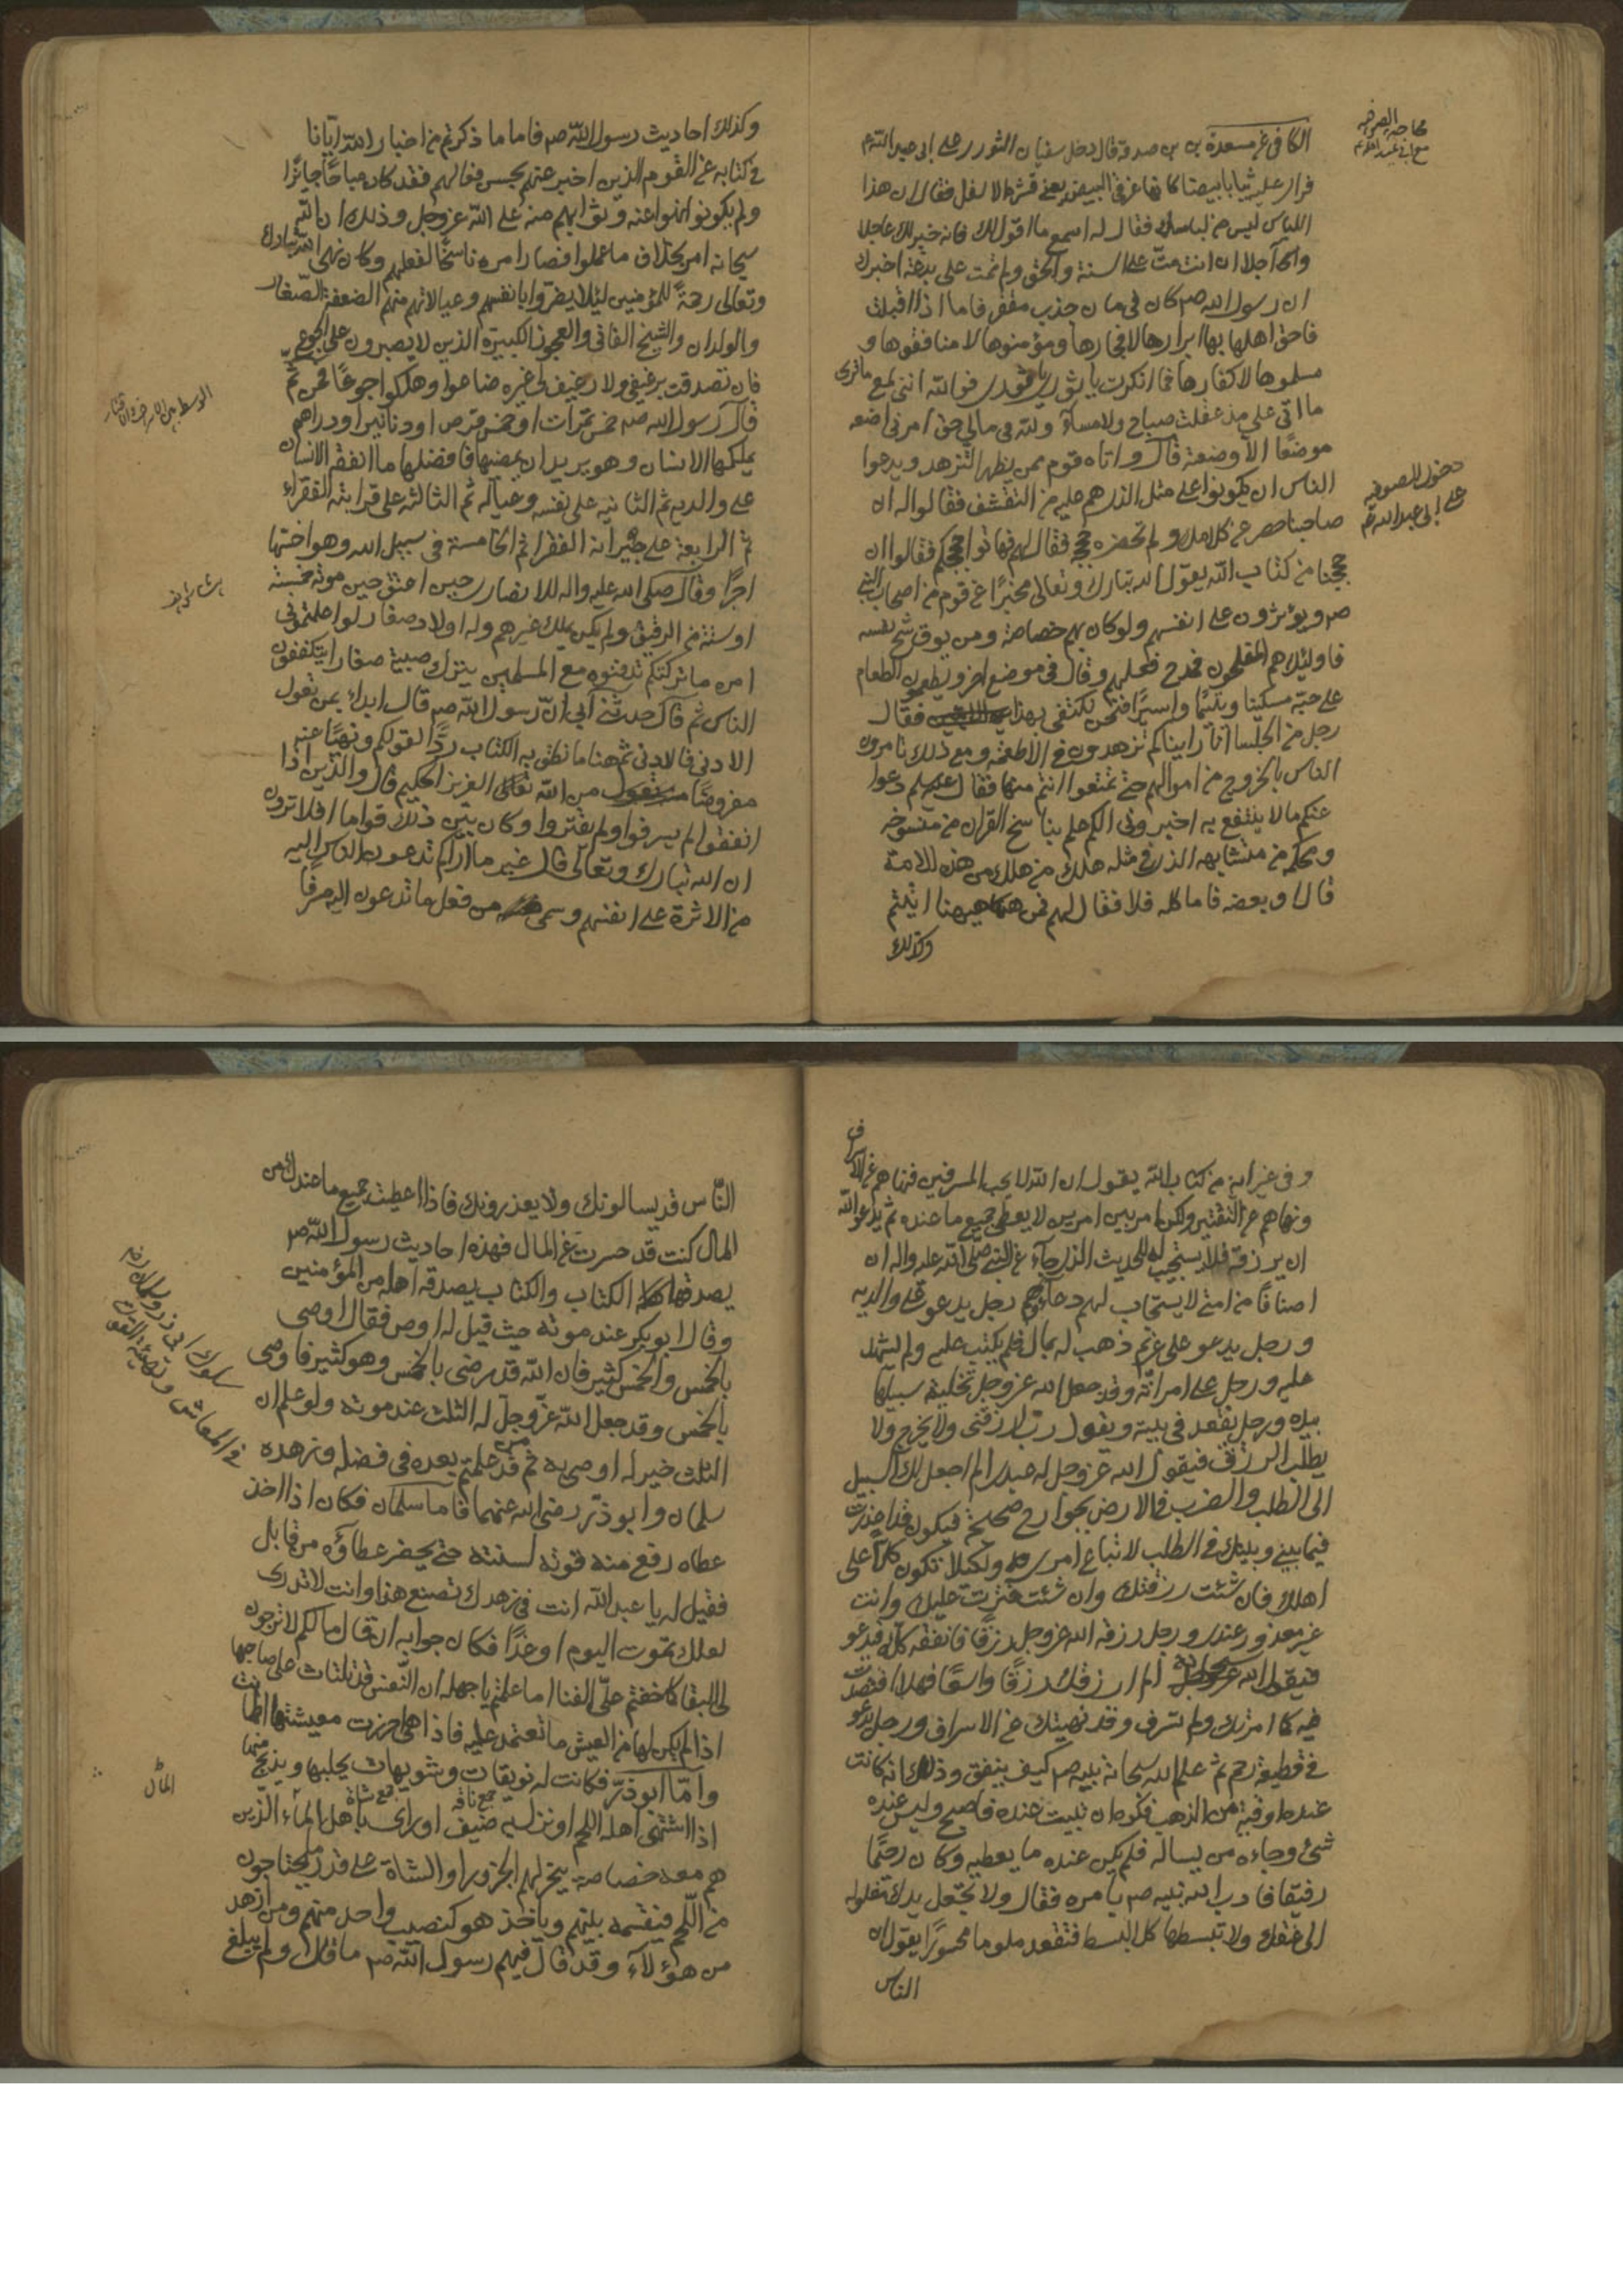 محاجة الصوفية
مع أبي عبد الله ع
الكافي عن مسعدة بن صدقة قال دخل سفيان الثوري على ابى عبد الله ع
فراى عليه ثيابا بيضا كانها غرقئ البيض يعنى قشره الاسفل فقال ان هذا
اللباس ليس من لباسك فقال له اسمع ما اقول لك فانه خير لك عاجلا
واجلا ان انت متّ على السنة والحق ولم تمت على بدعة اخبرك
ان رسول الله ص كان فى زمان جدب مقفر فاما اذا اقبلت
فاحق اهلها بها ابرارها لا فجارها ومؤمنوها لا منافقوها و
مسلموها لا كفارها فما انكرت يا ثورى فوالله اننى لمع ما ترى
ما اتى على مذ عقلت صباح ولا مساء ولله فى مالي حق امرنى اضعه
موضعًا الا وضعته قال واتاه قوم ممن يظهر التزهد ويدعوا
دخول الصوفية
على ابى عبد الله ع
الناس ان يكونوا على مثل الذى هم عليه من التقشف فقالوا له ان
صاحبنا حصر عن كلامك ولم تحضره حجج فقال لهم فهاتوا حججكم فقالوا ان
حججنا من كتاب الله يقول الله تبارك وتعالى مخبرًا عن قوم من اصحاب النبى
ص ويؤثرون على انفسهم ولو كان بهم خصاصة ومن يوق شح نفسه
فاولئك هم المفلحون فمدح فعلهم وقال فى موضع اخر ويطعمون الطعام
على حبه مسكينا ويتيمًا واسيرًا فنحن نكتفى بهذا فقال
رجل من الجلسا انا رايناكم تزهدون فى الاطعمة ومع ذلك تامرون
الناس بالخروج من اموالهم حتى تمتعوا انتم منها فقال عليه السلم دعوا
عنكم ما لا ينتفع به اخبرونى الكم علم بناسخ القران من منسوخه
ومحكمه من متشابهه الذى فى مثله هلك من هلك من هذه الامة
قالوا او بعضه فاما كله فلا فقال لهم فمن هيهنا اتيتم
وكذلك
وكذلك احاديث رسول الله ص فاما ما ذكرتم من اخبار الله ايّانا
فى كتابه عن القوم الذين اخبر عنهم بحسن فعالهم فقد كان مباحًا جائزًا
ولم يكونوا نهوا عنه وثوابهم منه على الله عز وجل وذلك ان الله
سبحانه امر بخلاف ما عملوا فصار امره ناسخًا لفعلهم وكان نهى الله تبارك
وتعالى رحمةً للمؤمنين لئلا يضرّوا بانفسهم وعيالاتهم منهم الضعفة الصّغار
والولدان والشيخ الفانى والعجوز الكبيرة الذين لا يصبرون على الجوع
فان تصدقت برغيفى ولا رغيف لى غيره ضاعوا وهلكوا جوعًا فمن ثَمّ
قال رسول الله ص خمس تمرات او خمس قرص او دنانير او دراهم
يملكها الانسان وهو يريد ان يمضيها فافضلها ما انفقه الانسان
على والديه ثم الثانية على نفسه وعياله ثم الثالثة على قرابته الفقراء
ثم الرابعة على جيرانه الفقرا ثم الخامسة فى سبيل الله وهو اخسّها
اجرًا وقال صلى الله عليه واله للانصارى حين اعتق حين موته خمسة
او ستة من الرقيق ولم يكن يملك غيرهم وله اولاد صغار لو اعلمتمونى
امره ما تركتكم تدفنوه مع المسلمين يترك صبية صغارا يتكففون
الناس ثم قال حدثنى ابى انّ رسول الله ص قال ابداء بمن تعول
الادنى فالادنى ثم هذا ما نطق به الكتاب ردًّا لقولكم ونهيًا عنه
مفروضًا من الله تعالى العزيز الحكيم قال والذين اذا
انفقوا لم يسرفوا ولم يقتروا وكان بين ذلك قواما افلا ترون
ان الله تبارك وتعالى قال غير ما اراكم تدعون الناس اليه
من الاثرة على انفسهم وسمى من فعل ما تدعون اليه مسرفًا
وفى غير اية من كتاب الله يقول ان الله لا يحب المسرفين فنهاهم عن الاسراف
ونهاهم عن التقتير ولكن امر بين امرين لا يعطى جميع ما عنده ثم يدعو الله
ان يرزقه فلا يستجيب له للحديث الذى جاء عن النبى صلى الله عليه واله ان
اصنافًا من امتى لا يستجاب لهم دعاؤهم رجل يدعو على والديه
ورجل يدعو على غريم ذهب له بمال فلم يكتب عليه ولم يشهد
عليه ورجل على امرأته وقد جعل الله عز وجل تخلية سبيلها
بيده ورجل يقعد فى بيته ويقول رب ارزقنى ولا يخرج ولا
يطلب الرزق فيقول الله عز وجل له عبدى الم اجعل لك السبيل
الى الطلب والضرب فى الارض بجوارح صحيحة فيكون قد اعذرت
فيما بينى وبينك فى الطلب لاتباع امرى ولكيلا تكون كلًّا على
اهلك فان شئت رزقتك وان شئت قترت عليك وانت
غير معذور عندى ورجل رزقه الله عز وجل رزقًا فانفقه كله فيدعو
فيقول الله سبحانه الم ارزقك رزقًا واسعًا فهلا اقتصدت
فيه كما امرتك ولم تسرف وقد نهيتك عن الاسراف ورجل يدعو
فى قطيعة رحم ثم علم الله سبحانه نبيه ص كيف ينفق وذلك انه كانت
عنده اوقية من الذهب فكره ان تبيت عنده فاصبح وليس عنده
شئ وجاءه من يساله فلم يكن عنده ما يعطيه وكان رحيمًا
رفيقا فادب الله نبيه ص بامره فقال ولا تجعل يدك مغلولة
الى عنقك ولا تبسطها كل البسط فتقعد ملوما محسورًا يقول ان
الناس
النّاس قد يسالونك ولا يعذرونك فاذا اعطيت جميع ما عندك من
المال كنت قد حسرت عن المال فهذه احاديث رسول الله ص
يصدقها الكتاب والكتاب يصدقه اهله من المؤمنين
وقال ابو بكر عند موته حيث قيل له اوص فقال اوصى
بالخمس والخمس كثير فان الله قد رضى بالخمس وهو كثير فاوصى
بالخمس وقد جعل الله عزّ وجلّ له الثلث عند موته ولو علم ان
الثلث خير له اوصى به ثم من قد علمتم بعده فى فضله وزهده
سلمان وابو ذرّ رضى الله عنهما فاما سلمان فكان اذا اخذ
عطاه رفع منه قوته لسنته حتى يحضر عطاؤه من قابل
فقيل له يا عبد الله انت فى زهدك تصنع هذا وانت لا تدرى
لعلك تموت اليوم او غدًا فكان جوابه ان قال ما لكم لا ترجون
لى البقا كما خفتم علىّ الفنا اما علمتم يا جهلة ان النّفس قد تلتاث على صاحبها
اذا لم يكن لها من العيش ما تعتمد عليه فاذا هى احرزت معيشتها اطمانت
وامّا ابو ذرّ فكانت له نويقات وشويهات يحلبها ويذبح منها
جمع ناقة جمع شاة
اذا اشتهى اهله اللحم او نزل به ضيف او راى باهل الماء الذين
هم معه خصاصة ينحر لهم الجزور او الشاة على قدر ما يحتاجون
من اللّحم فيقسمه بينهم وياخذ هو كنصيب واحد منهم ومن ازهد
من هؤلآء وقد قال فيهم رسول الله ص ما قال ولم يبلغ
سلوك ابى ذر وسلمان
فى المعاش
المال